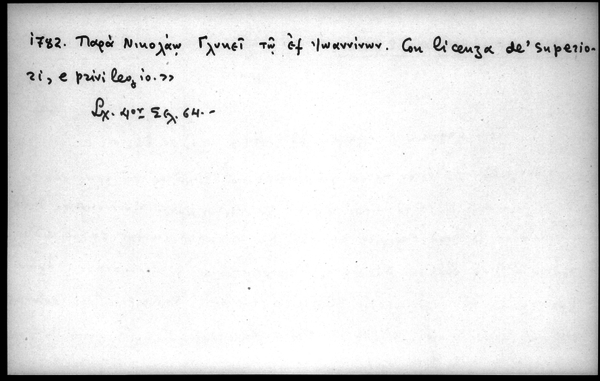 1782. Παρὰ Νικολάῳ Γλυκεῖ τῷ ἐξ Ἰωαννίνων. Con licenza de' Superio-
ri, e privilegio.»
Σχ. 4ον Σελ. 64.-